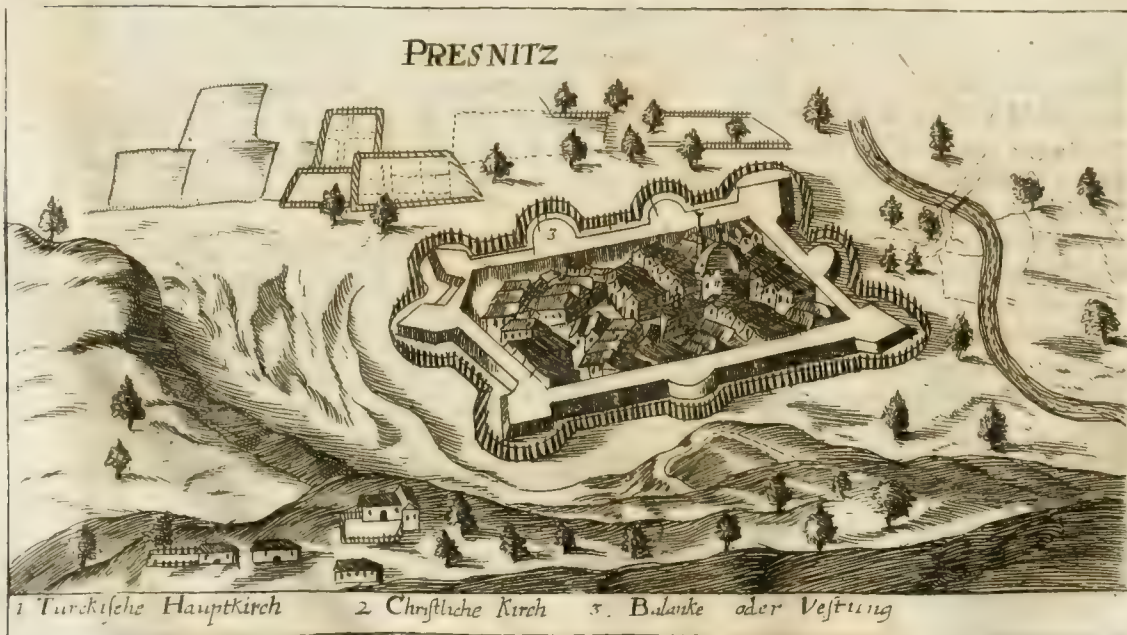 PRESNITZ
3
1 Turckische Hauptkirch 2 Christliche Kirch 3. Balanke oder Vestung